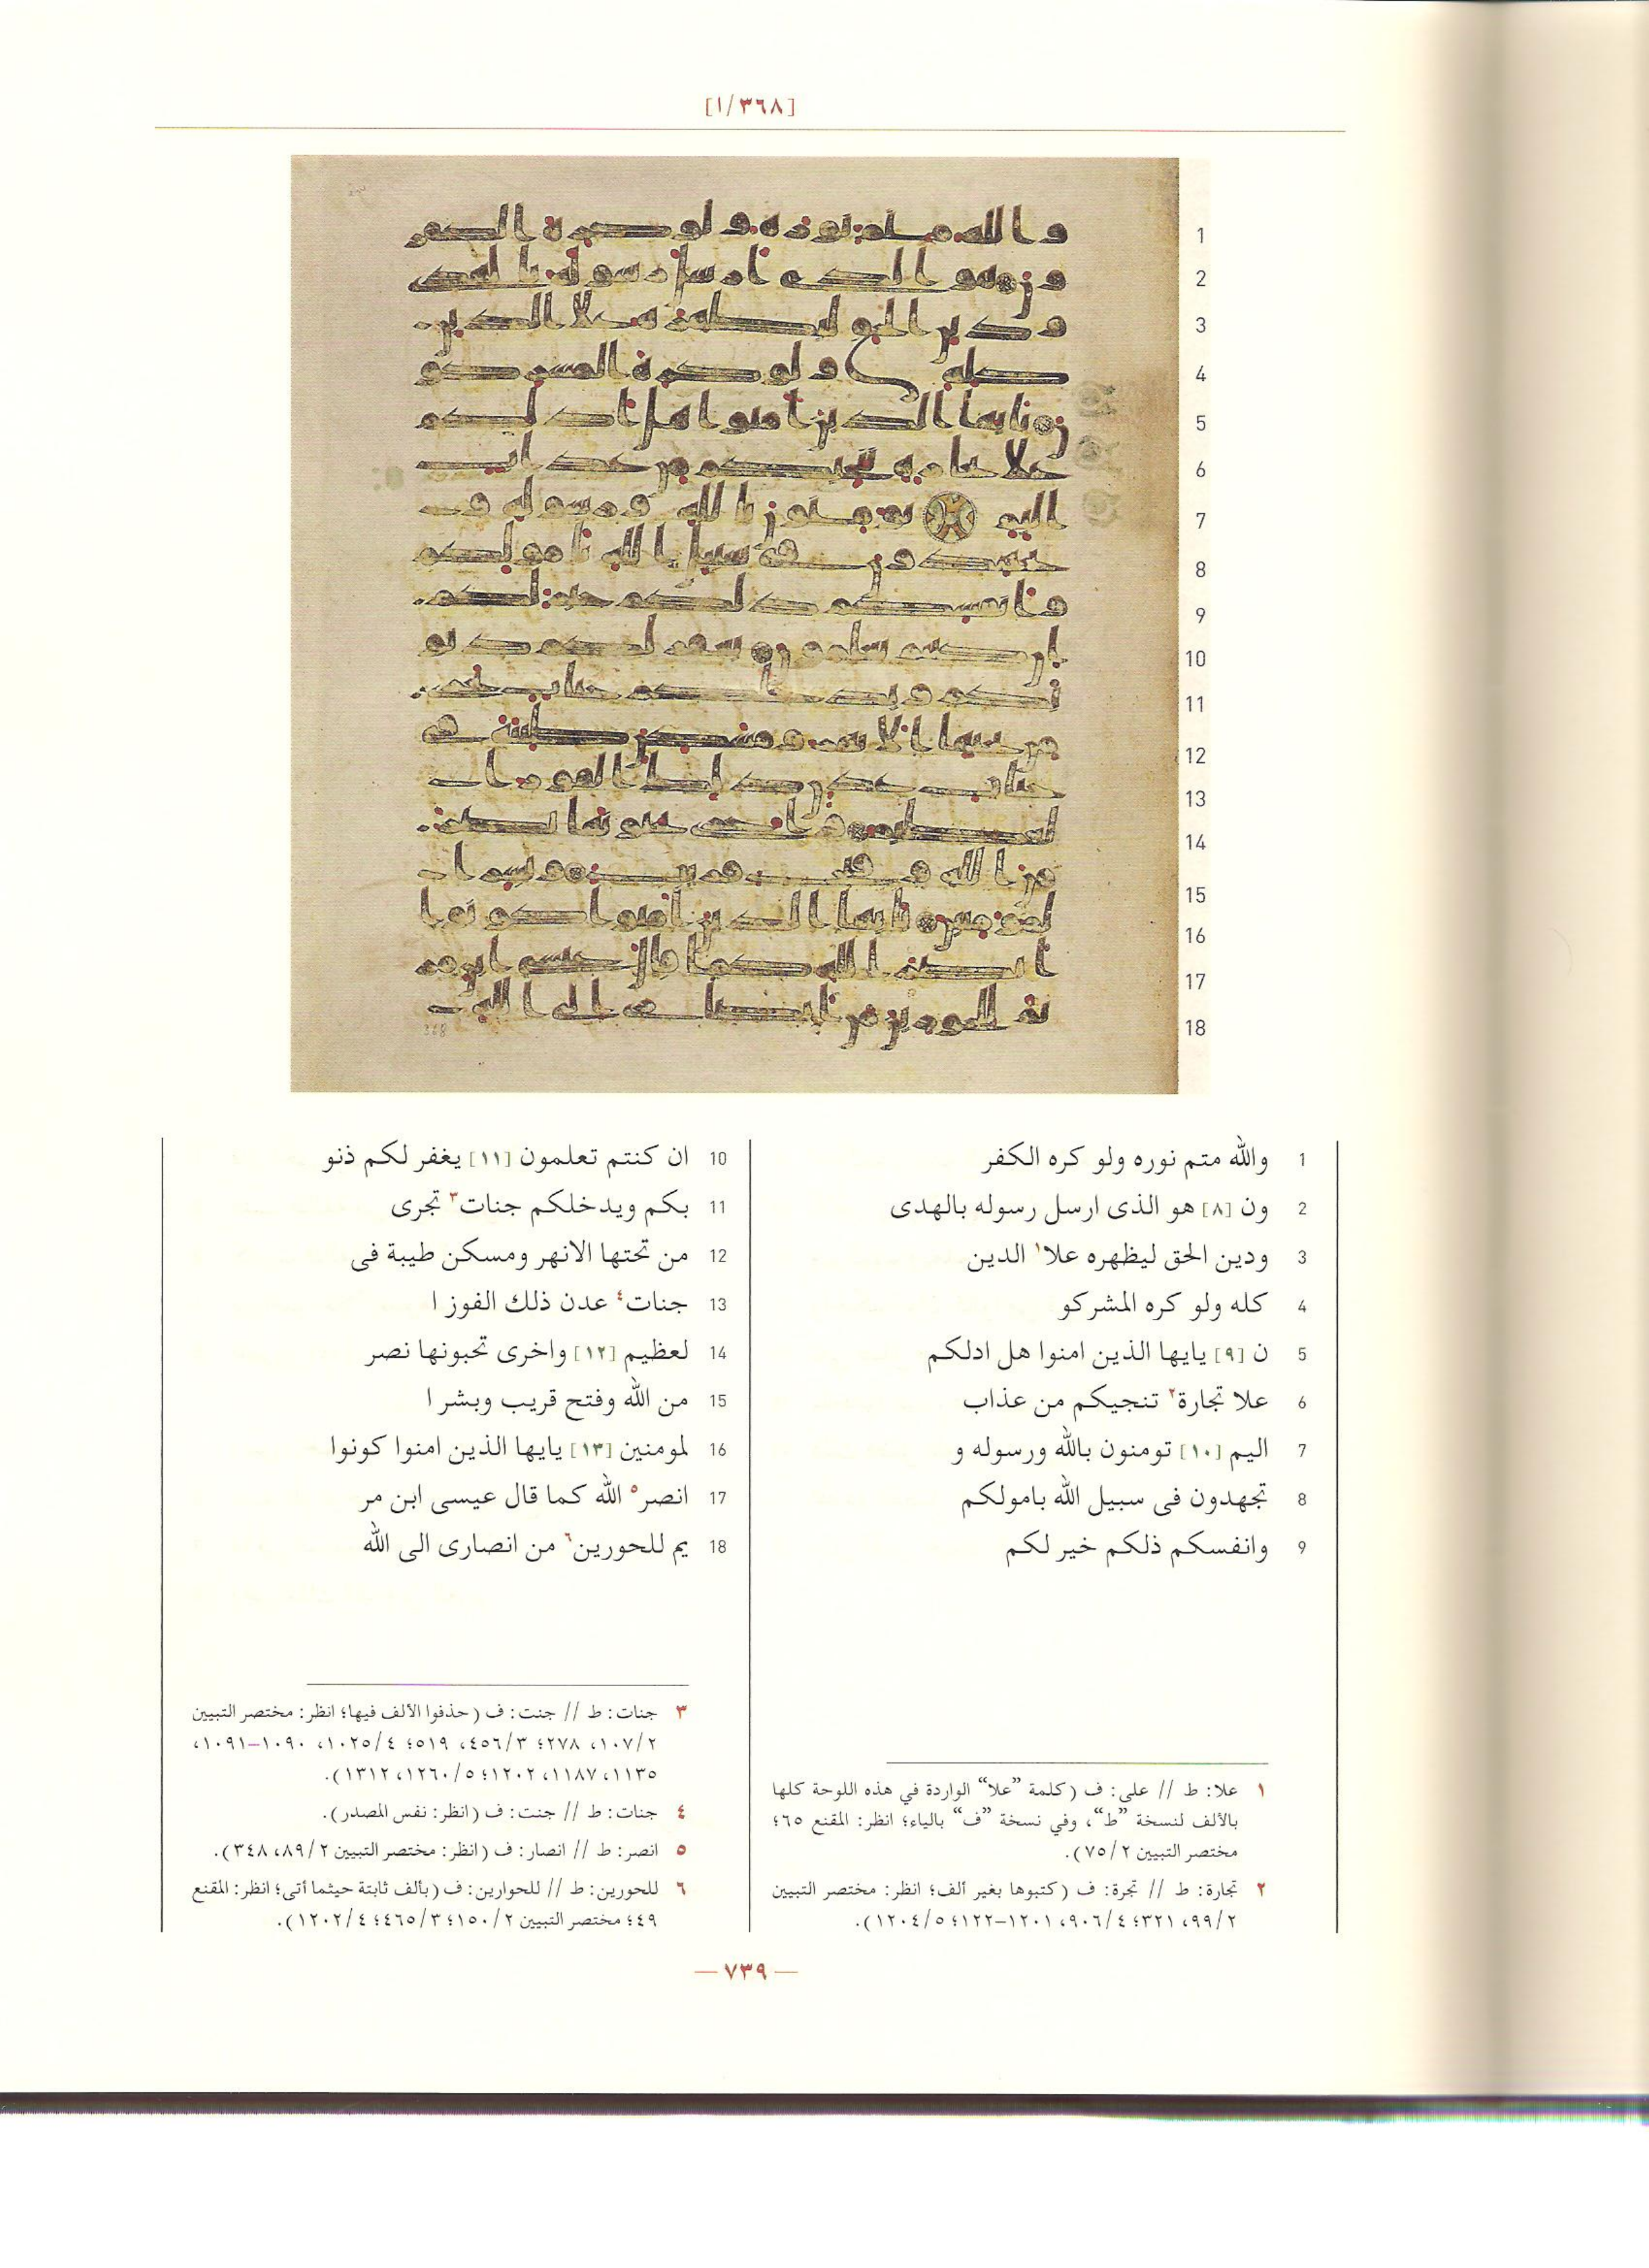 [١/٣٦٨]
1 والله متم نوره ولو كره الكفر
2 ون [٨] هو الذى ارسل رسوله بالهدى
3 ودين الحق ليظهره علا١ الدين
4 كله ولو كره المشركو
5 ن [٩] يايها الذين امنوا هل ادلكم
6 علا تجارة٢ تنجيكم من عذاب
7 اليم [١٠] تومنون بالله ورسوله و
8 تجهدون فى سبيل الله بامولكم
9 وانفسكم ذلكم خير لكم
10 ان كنتم تعلمون [١١] يغفر لكم ذنو
11 بكم ويدخلكم جنات٣ تجرى
12 من تحتها الانهر ومسكن طيبة فى
13 جنات٤ عدن ذلك الفوز ا
14 لعظيم [١٢] واخرى تحبونها نصر
15 من الله وفتح قريب وبشر ا
16 لمومنين [١٣] يايها الذين امنوا كونوا
17 انصر٥ الله كما قال عيسى ابن مر
18 يم للحورين٦ من انصارى الى الله
١ علا: ط // على: ف (كلمة ”علا“ الواردة في هذه اللوحة كلها
بالألف لنسخة ”ط“، وفي نسخة ”ف“ بالياء؛ انظر: المقنع ٦٥؛
مختصر التبيين ٧٥/٢).
٢ تجارة: ط // تجرة: ف (كتبوها بغير ألف؛ انظر: مختصر التبيين
٩٩/٢، ٣٢١؛ ٩٠٦/٤، ١٢٠١–١٢٢؛ ١٢٠٤/٥).
٣ جنات: ط // جنت: ف (حذفوا الألف فيها؛ انظر: مختصر التبيين
١٠٧/٢، ٢٧٨؛ ٤٥٦/٣، ٥١٩؛ ١٠٢٥/٤، ١٠٩٠–١٠٩١،
١١٣٥، ١١٨٧، ١٢٠٢؛ ١٢٦٠/٥، ١٣١٢).
٤ جنات: ط // جنت: ف (انظر: نفس المصدر).
٥ انصر: ط // انصار: ف (انظر: مختصر التبيين ٨٩/٢، ٣٤٨).
٦ للحورين: ط // للحوارين: ف (بألف ثابتة حيثما أتى؛ انظر: المقنع
٤٩؛ مختصر التبيين ١٥٠/٢؛ ٤٦٥/٣؛ ١٢٠٢/٤).
— ٧٣٩ —